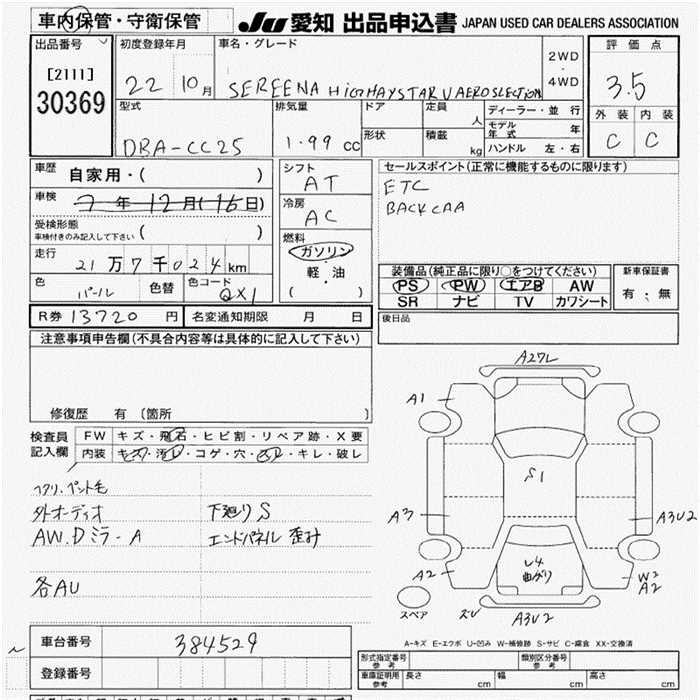 車内保管・守衛保管
JU 愛知 出品申込書 JAPAN USED CAR DEALERS ASSOCIATION
出品番号
[2111]
30369
初度登録年月
22 10月
車名・グレード
SEREENA HiGHAYSTAR V AEROSLECTION
2WD
・
4WD
評価点
3.5
外装 内装
C C
型式
DBA-CC25
排気量
1.99 cc
ドア
形状
定員
人
積載
kg
ディーラー・並行
モデル年式 年
ハンドル 左・右
車歴
自家用・( )
車検
7年12月(16日)
受検形態
車検付きのみ記入して下さい ( )
走行
21万7千024km
色
パール
色替
色コード
QX1
シフト
AT
冷房
AC
燃料
ガソリン
軽・油
( )
セールスポイント(正常に機能するものに限ります)
ETC
BACKCAA
装備品(純正品に限り○をつけてください)
PS PW エアB AW
SR ナビ TV カワシート
新車保証書
有・無
R券 13720 円
名変通知期限 月 日
後日品
注意事項申告欄(不具合内容等は具体的に記入して下さい)
修復歴 有 〔箇所 〕
検査員
記入欄
FW キズ・飛石・ヒビ割・リペア跡・X要
内装 キズ・汚レ・コゲ・穴・スレ・キレ・破レ
外オーディオ
下廻りS
AW.Dミラ-A
エンドパネル歪み
各AU
A27L
A1
S1
A3
A3U2
A2
U4
曲がり
W3
A2
スペア
ズレ
A3U2
A-キズ E-エクボ U-凹み W-補修跡 S-サビ C-腐食 XX-交換済
車台番号
384529
登録番号
形式指定番号
参考
類別区分番号
参考
車庫証明用
参考
長さ cm
幅 cm
高さ cm